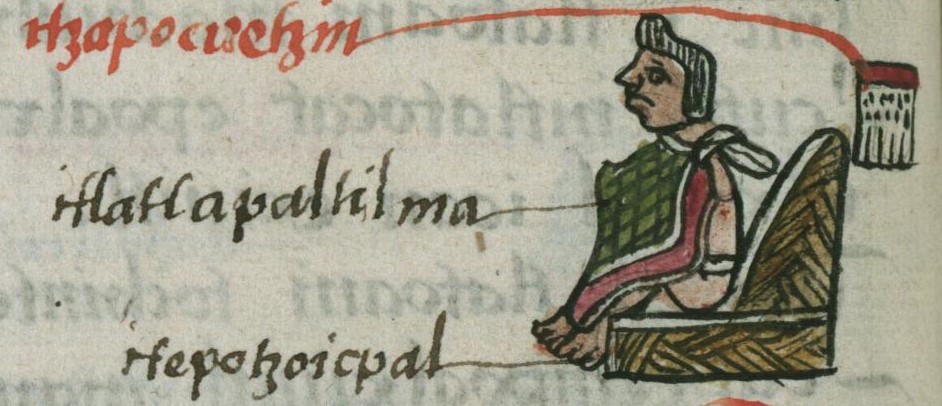 tzapocuetzin
itlatlapaltilma
itepotzoicpal